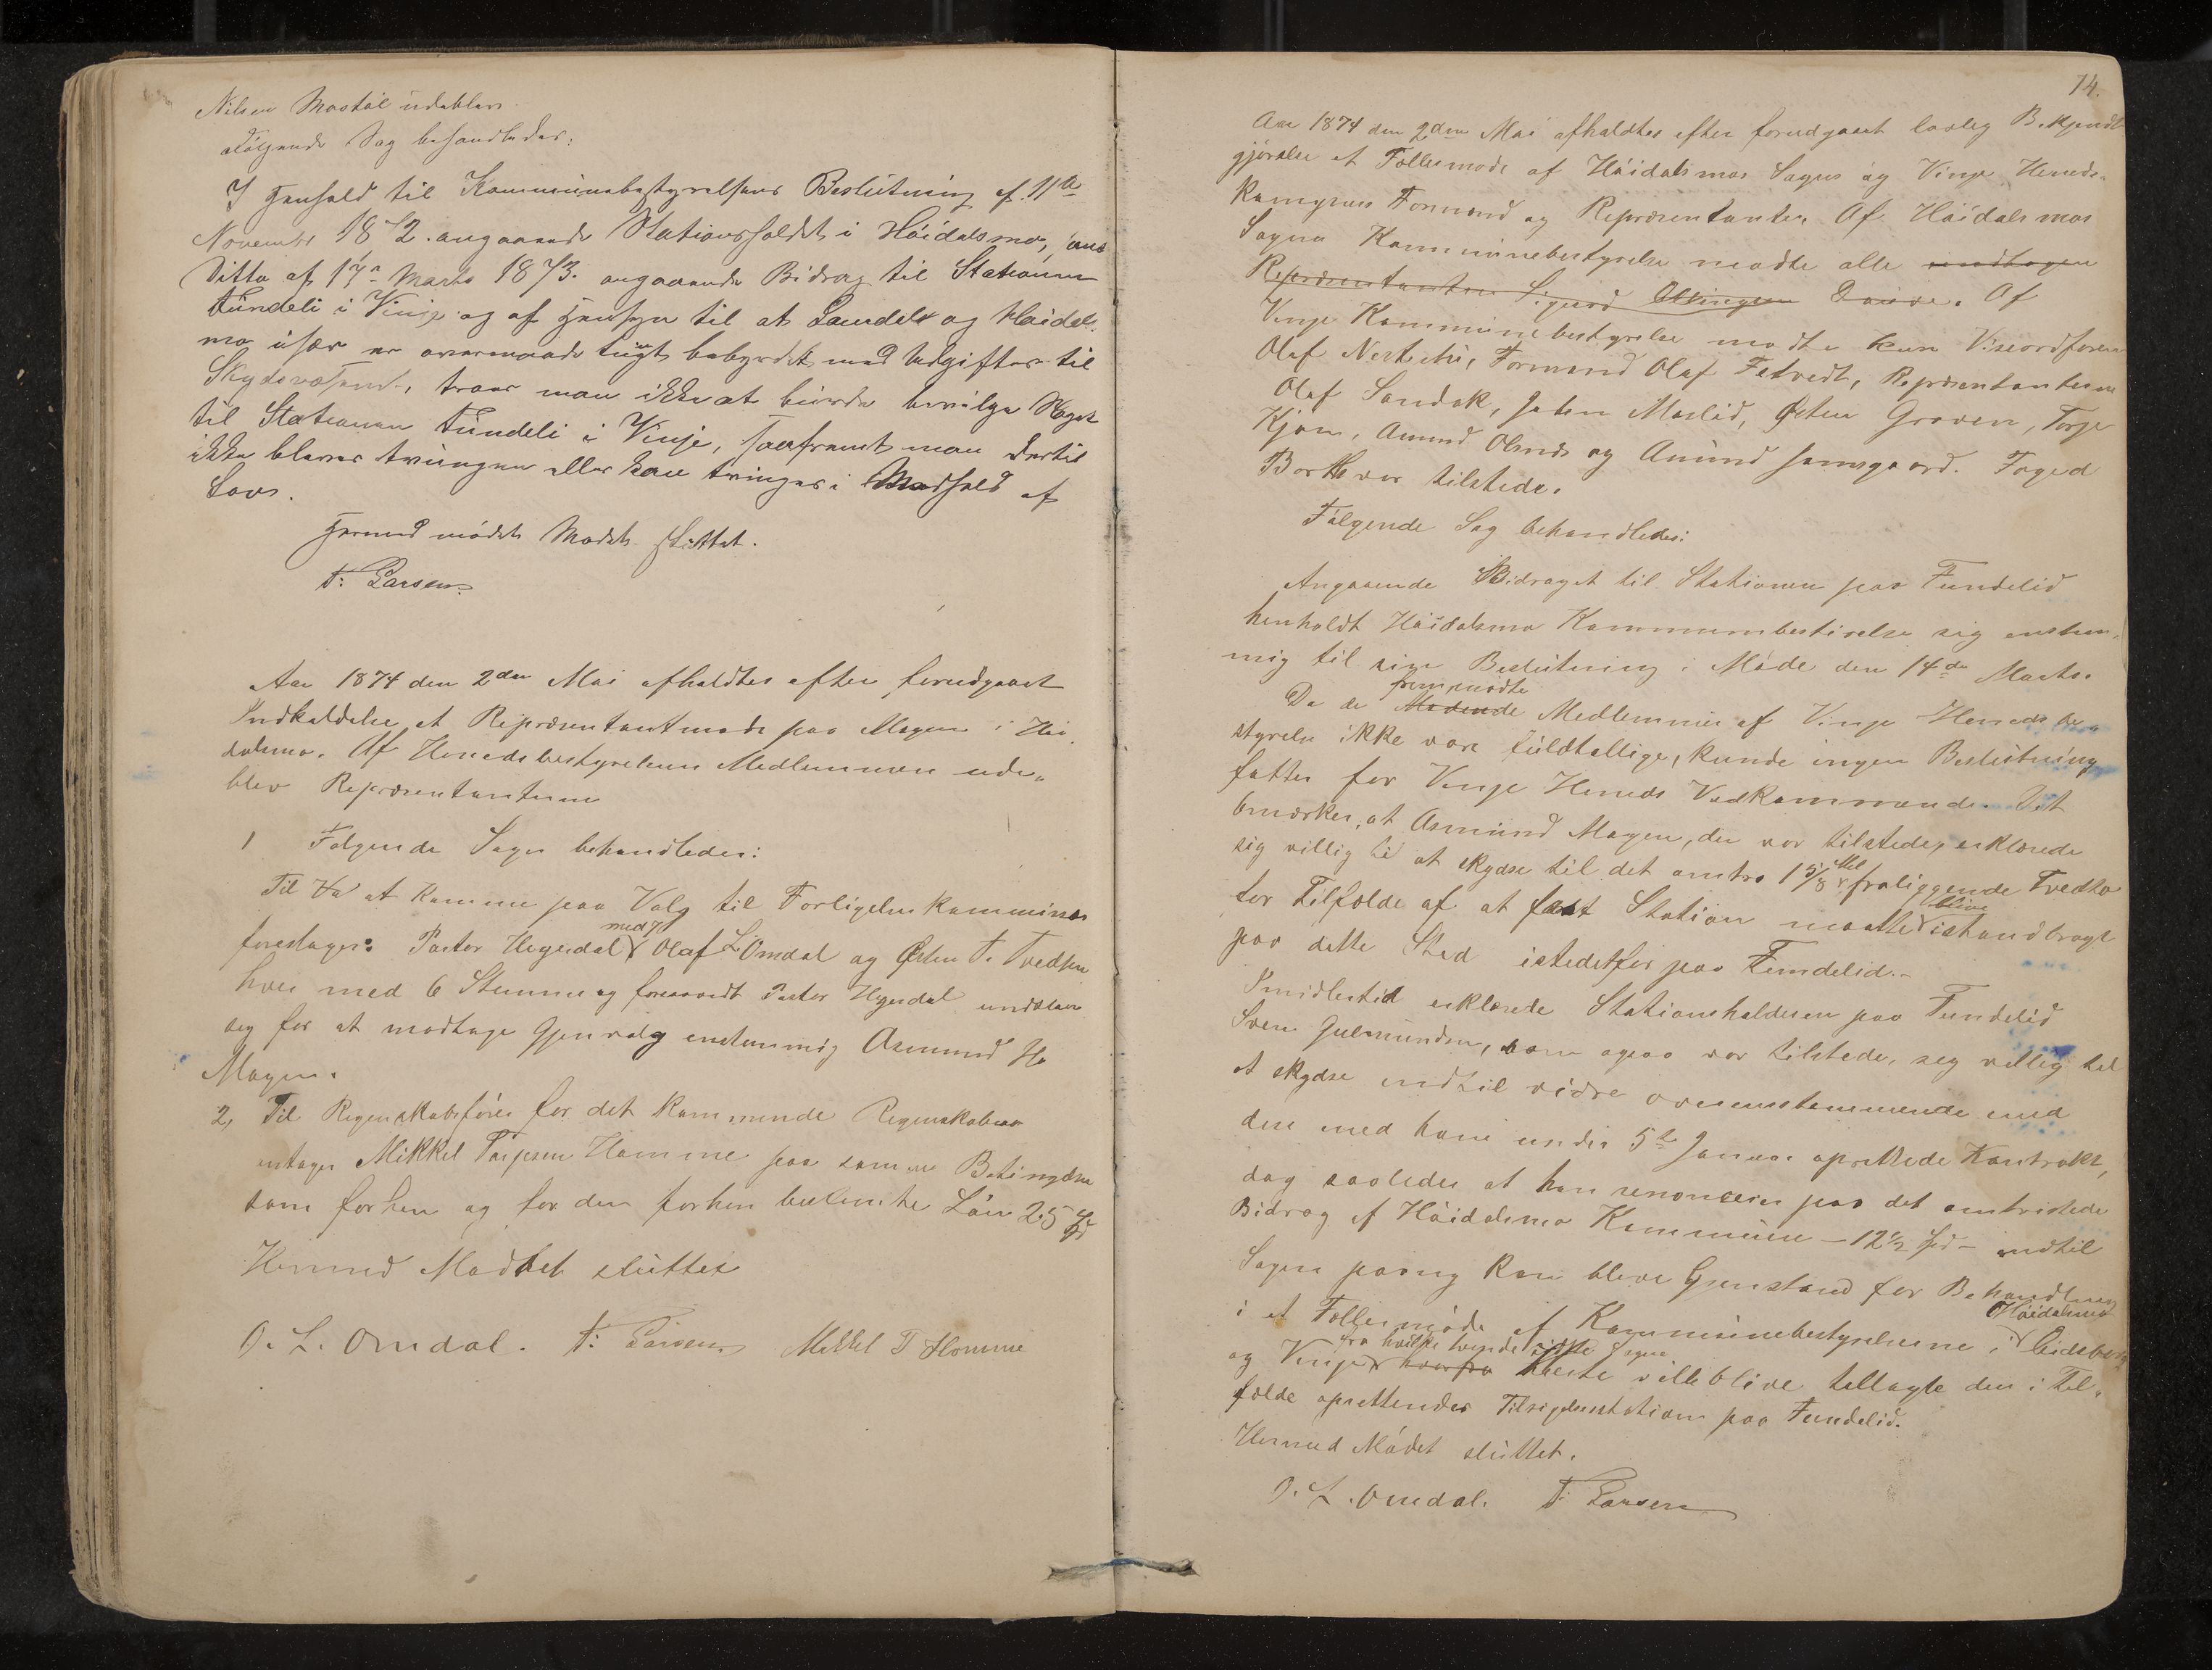 Nilsen Mostøl udeblev.
Følgende Sag behandledes:
I Henhold til Kommunebestyrelsens Beslutning af 11te
November 1872. angaaende Stationsholdet i Høidalsmo, 
Ditto af 17de Marts 1873. angaaende Bidrag til Stationen
Fundeli i Vinje og af Hensyn til at Laurdal og Høidals-
mo især er overmaade tungt bebyrdet med Udgifter til
Skydsvæsenet, troer man ikke at burde bevilge Noget
til Stationen Fundeli i Vinje, saafremt man dertil
ikke bliver tvungen eller kan tvinges i Medhold af
Lov.
Hermed mødet Mødet sluttet.
T. Larsen.
Aar 1874 den 2den Mai afholdtes efter forudgaaet
Indkaldelse et Repræsentantmøde paa Mogen i Høi-
dalsmo. Af Herredsbestyrelsens Medlemmer ude-
blev Repræsentanterne
1 Følgende Sager behandledes:
Til at komme paa Valg til Forligelseskommissær
med 7
foresloges: Pastor Hegerdal Olaf L. Omdal og Østen T. Tvedten
hver med 6 Stemmer og foresaavidt Pastor Hegerdal undslaar
sig for at modtage Gjenvalg enstemmig Asmund H.
Mogen.
2, Til Regenskabsfører for det kommende Regenskabsaar
antoges Mikkel Torjesen Homme paa samme Betingelser
som forhen og for den forhen bestemte Løn 25 Spd
Hermed Mødet sluttet
O. L. Omdal. T. Larsen Mikkel T Homme
74.
Aar 1874 den 2den Mai afholdtes efter forudgaaet lovlig Bekjendt
gjørelse et Fællesmøde af Høidalsmos Sogns og Vinje Herreds-
Kamynes Formænd og Repræsentanter. Af Høidalsmos
Sogns Kommunebestyrelse mødte alle undtagen
Repræsentanten Sigurd Ollingsen. Af
Vinje Kommunebestyrelse mødte kun Viseordfører
Olaf Nestestu, Formænd Olaf Fetvedt, Repræsentanterne
Olaf Sandok, John Maslid, Østen Groven, Torje
Kjøm, Amund Olsnes og Amund Jamsgaard. Foged
Borth var tilstede.
Følgende Sag behandledes:
Angaaende Bidraget til Stationen paa Fundelid
henholdt Høidalsmo Kommunebestirelse sig enstem-
mig til sin Beslutning i Møde den 14de Marts.
fremmødte
Da de Mødende Medlemmer af Vinje Herredsbe-
styrelse ikke vare fuldtallige, kunde ingen Beslutning
fattes for Vinje Herreds Vedkommende. Det
bmærkes, at Asmund Mogen, der var tilstede, erklærede
sig villig til at skydse til det omtr. 1 5/8 Mil fraliggende Tvedto
blive
for Tilfælde af at fast Station maatte istandbragt
paa dette Sted istedetfor paa Fundelid.-
Imidlertid erklærede Stationsholderen paa Fundelid
Sven Gulmundsen, som ogsaa var tilstede, sig villig til
at skydse indtil vidre overensstemmende med
den med ham under 5te Januar oprettede Kontrakt,
dog saaledes at han renoncerer paa det omtvistede
Bidrag af Høidalsmo Kommune - 12 1/2 Spd - indtil
Sagen paany kan blive Gjenstand for Behandling
Høidalsmo
i et Fællesmøde af Kommunebestyrelserne i Eidsborg
fra hvilke tvende sidste Sogne
og Vinje hvorfra Heste ville blive tillagte den i Til-
fælde oprettendes Tilsigelsesstation paa Fundelid.
Hermed Mødet sluttet.
O. L. Omdal. T. Larsen